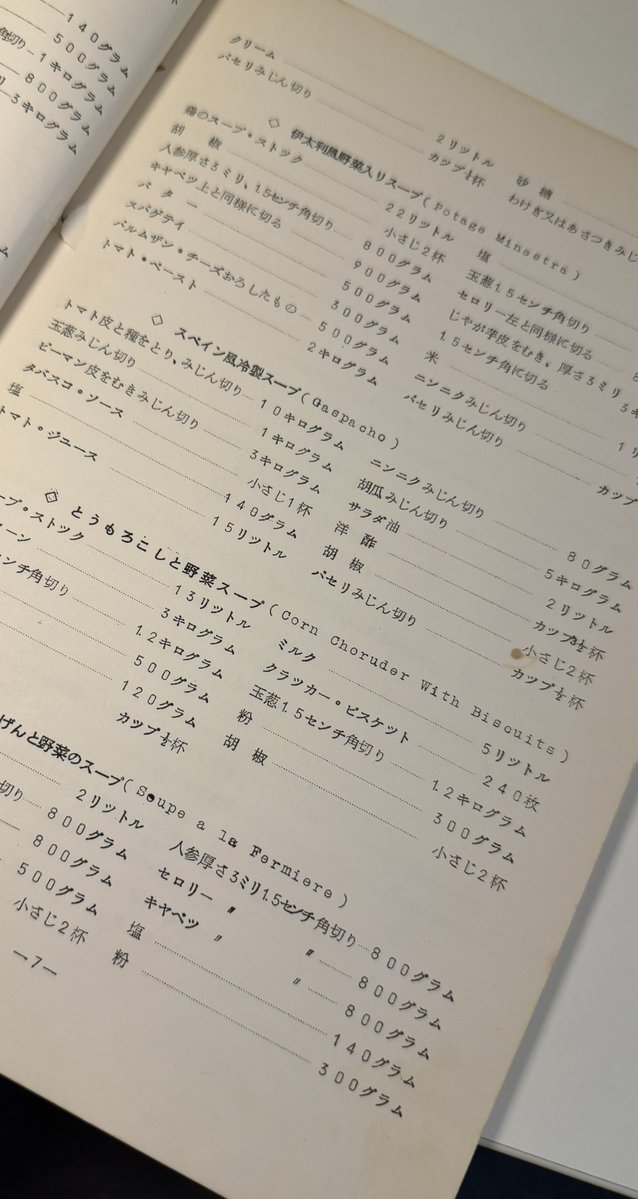 140グラム
500グラム
角切り 1キログラム
800グラム
リ 3キログラム
ム
クリーム 2リットル 砂糖
パセリみじん切り カップ½杯 わけぎ又はあさつきみじ
◇ 伊太利風野菜入りスープ(Potage Minestra)
鶏のスープ・ストック 22リットル 塩
胡椒 小さじ2杯 玉葱1.5センチ角切り
人参厚さ3ミリ、1.5センチ角切り 800グラム セロリー左と同様に切る
キヤベツ上と同様に切る 900グラム じゃが芋皮をむき、厚さ3ミリ
バター 500グラム 1.5センチ角に切る 3キ
スパゲテイ 300グラム 米
パルムザン・チーズおろしたもの 500グラム ニンニクみじん切り
トマト・ペースト 2キログラム パセリみじん切り カップ
◇ スペイン風冷製スープ(Gaspacho)
トマト皮と種をとり、みじん切り 10キログラム ニンニクみじん切り 80グラム
玉葱みじん切り 1キログラム 胡瓜みじん切り 5キログラム
ピーマン皮をむきみじん切り 3キログラム サラダ油 2リットル
タバスコ・ソース 小さじ1杯 洋酢 カップ3½杯
塩 140グラム 胡椒 小さじ2杯
トマト・ジュース 15リットル パセリみじん切り カップ½杯
◇ とうもろこしと野菜スープ(Corn Choruder With Biscuits)
ープ・ストック 13リットル ミルク 5リットル
ーン 3キログラム クラツカー・ビスケット 240枚
ンチ角切り 1.2キログラム 玉葱1.5センチ角切り 1.2キログラム
500グラム 粉 300グラム
120グラム 胡椒 小さじ2杯
カップ½杯
げんと野菜のスープ(Soupe a la Fermiere)
2リットル 人参厚さ3ミリ1.5センチ角切り 800グラム
切り 800グラム セロリー 〃 〃 800グラム
800グラム キヤベツ 〃 〃 800グラム
500グラム 塩 140グラム
小さじ2杯 粉 300グラム
—7—